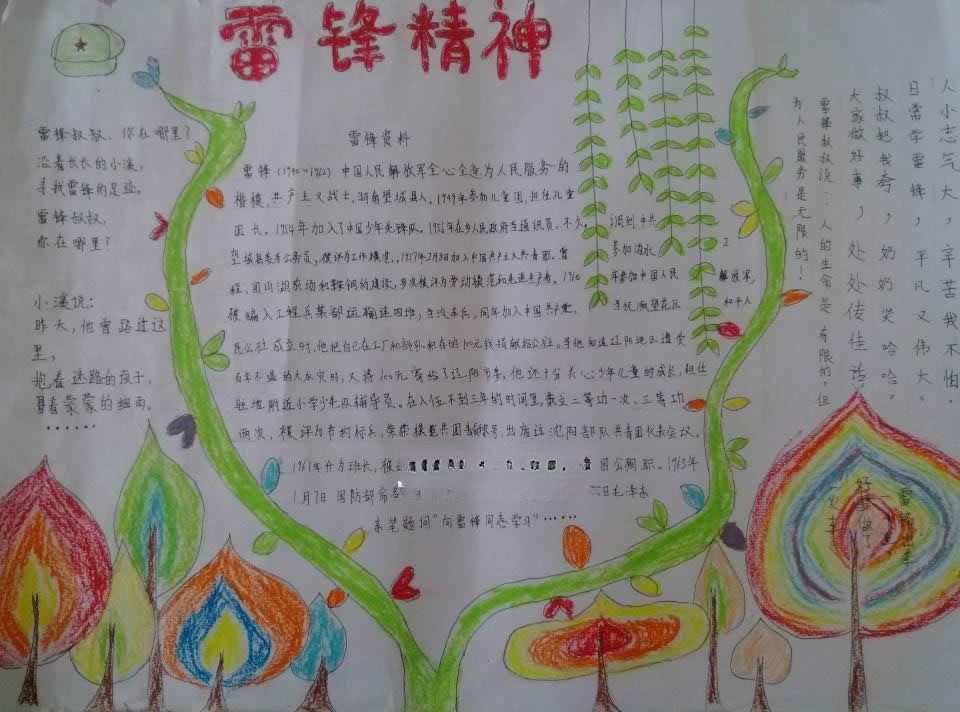 雷锋精神
雷锋叔叔,你在哪里?
沿着长长的小溪,
寻找雷锋的足迹。
雷锋叔叔,
你在哪里?
小溪说:
昨天,他曾路过这
里,
抱着迷路的孩子,
冒着蒙蒙的细雨。
······
雷锋资料
雷锋(1940~1962) 中国人民解放军全心全意为人民服务的
楷模,共产主义战士,湖南望城县人。1949年参加儿童团,担任儿童
团长。1954年加入了中国少年先锋队。1956年在乡人民政府当通讯员,不久,
调到中共
望城县委当公务员,被评为工作模范。1957年2月8日加入中国共产主义共青团。曾
参加沩水 工
程、团山湖农场和鞍钢的建设,多次被评为劳动模范和先进生产者。1960
年参加中国人民 解放军,
被编入工程兵某部运输连四班,当汽车兵,同年加入中国共产党。
当抚顺望花区 和平人
民公社成立时,他把自己在工厂和部队积存的100元钱捐献给公社。
百年不遇的大水灾时,又将100元寄给了辽阳市委。他还十分关心少年儿童的成长,担任
驻地附近小学少先队辅导员。在入伍不到三年的时间里,荣立二等功一次、三等功
两次,被评为节约标兵,荣获模范共青团员称号,出席过沈阳部队共青团代表会议。
1961年升为班长,
因公殉职。1963年
1月7日国防部命名
日毛泽东
亲笔题词“向雷锋同志学习”······
人小志气大,辛苦我不怕。
日常学雷锋,平凡又伟大。
叔叔把我夸,奶奶笑哈哈。
大家做好事,处处传佳话。
雷锋叔叔说:人的生命是有限的,但
为人民服务是无限的!
雷锋出差
好事做了
一火车